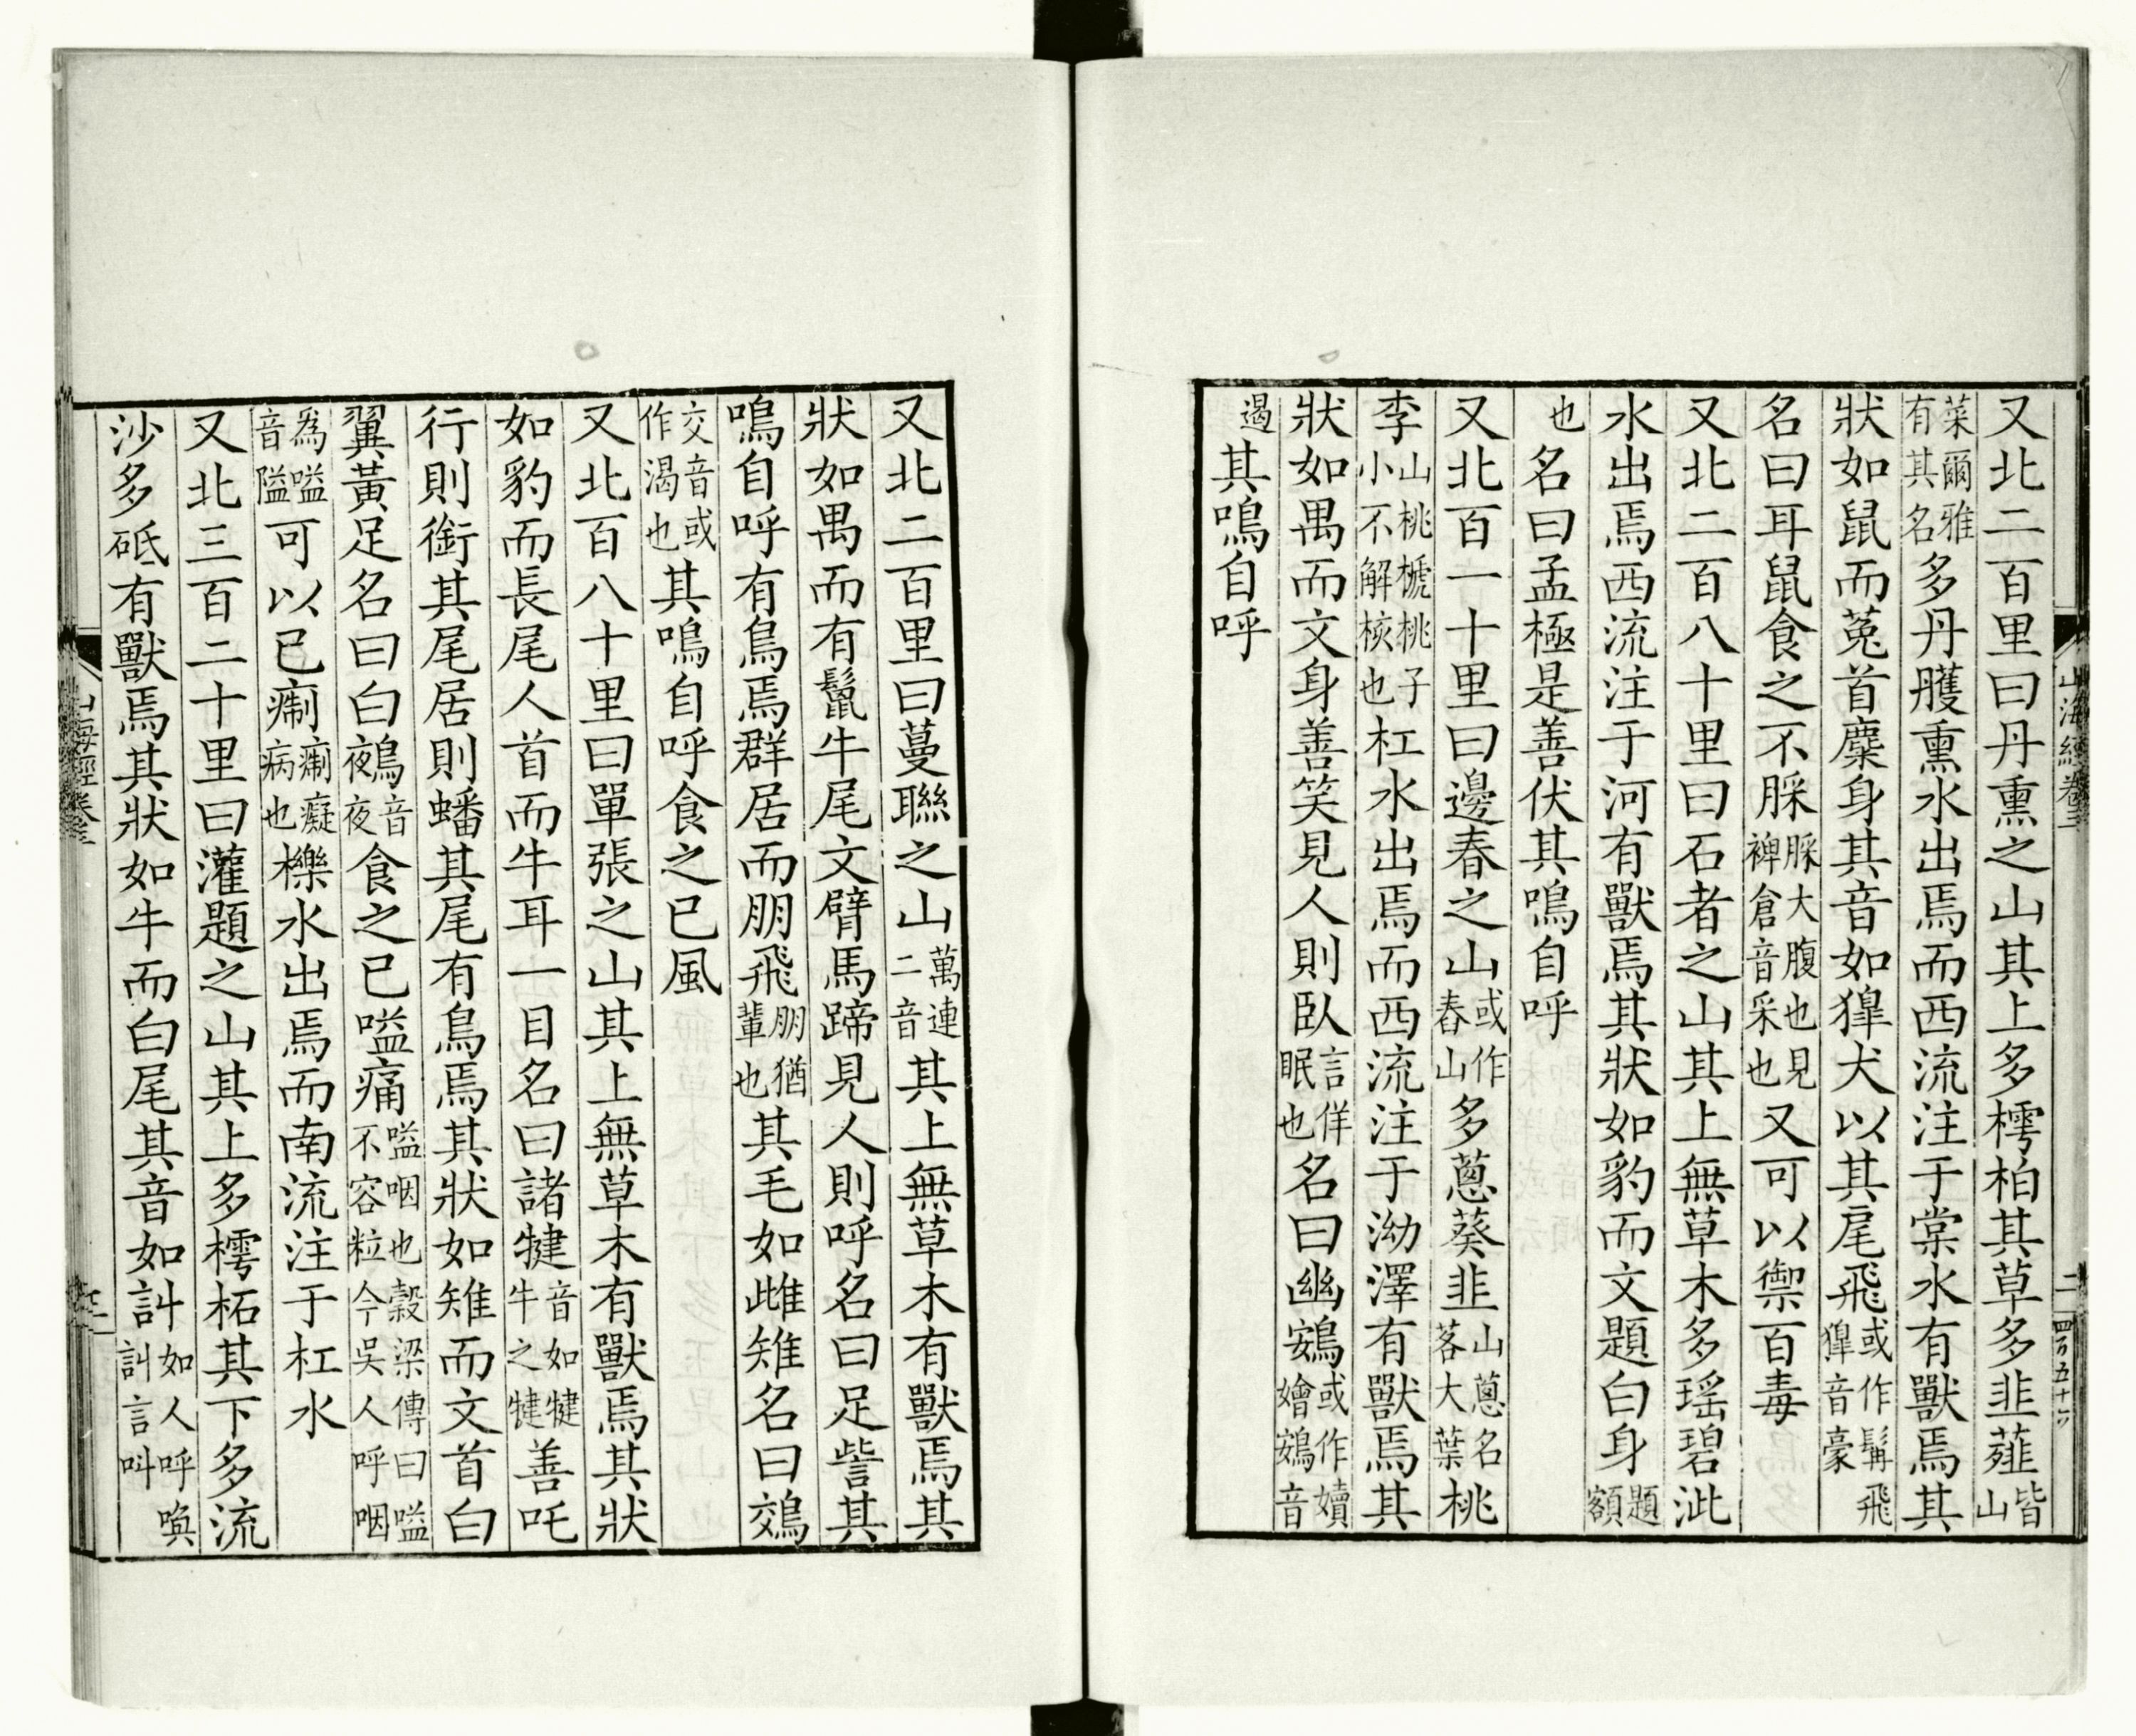 又北二百里曰丹熏之山其上多樗柏其草多韭薤皆山
菜爾雅有其名多丹雘熏水出焉而西流注于棠水有獸焉其
狀如鼠而菟首麋身其音如獆犬以其尾飛或作髯飛獆音豪
名曰耳鼠食之不䐆䐆大腹也見裨倉音采也又可以禦百毒
又北二百八十里曰石者之山其上無草木多瑶碧泚
水出焉西流注于河有獸焉其狀如豹而文題白身題額
也名曰孟極是善伏其鳴自呼
又北百一十里曰邊春之山或作舂山多蔥葵韭山蔥名茖大葉桃
李山桃榹桃子小不解核也杠水出焉而西流注于泑澤有獸焉其
狀如禺而文身善笑見人則臥言佯眠也名曰幽鴳或作㜨嬒鴳音
遏其鳴自呼
又北二百里曰蔓聯之山萬連二音其上無草木有獸焉其
狀如禺而有鬣牛尾文臂馬蹄見人則呼名曰足訾其
鳴自呼有鳥焉群居而朋飛朋猶輩也其毛如雌雉名曰鵁
交音或作渴也其鳴自呼食之已風
又北百八十里曰單張之山其上無草木有獸焉其狀
如豹而長尾人首而牛耳一目名曰諸犍音如犍牛之犍善吒
行則銜其尾居則蟠其尾有鳥焉其狀如雉而文首白
翼黃足名曰白鵺音夜食之已嗌痛嗌咽也榖梁傳曰嗌不容粒今吳人呼咽
為嗌音隘可以已痸痸癡病也櫟水出焉而南流注于杠水
又北三百二十里曰灌題之山其上多樗柘其下多流
沙多砥有獸焉其狀如牛而白尾其音如訆如人呼喚訆言叫
山海經卷三
二
四百五十六